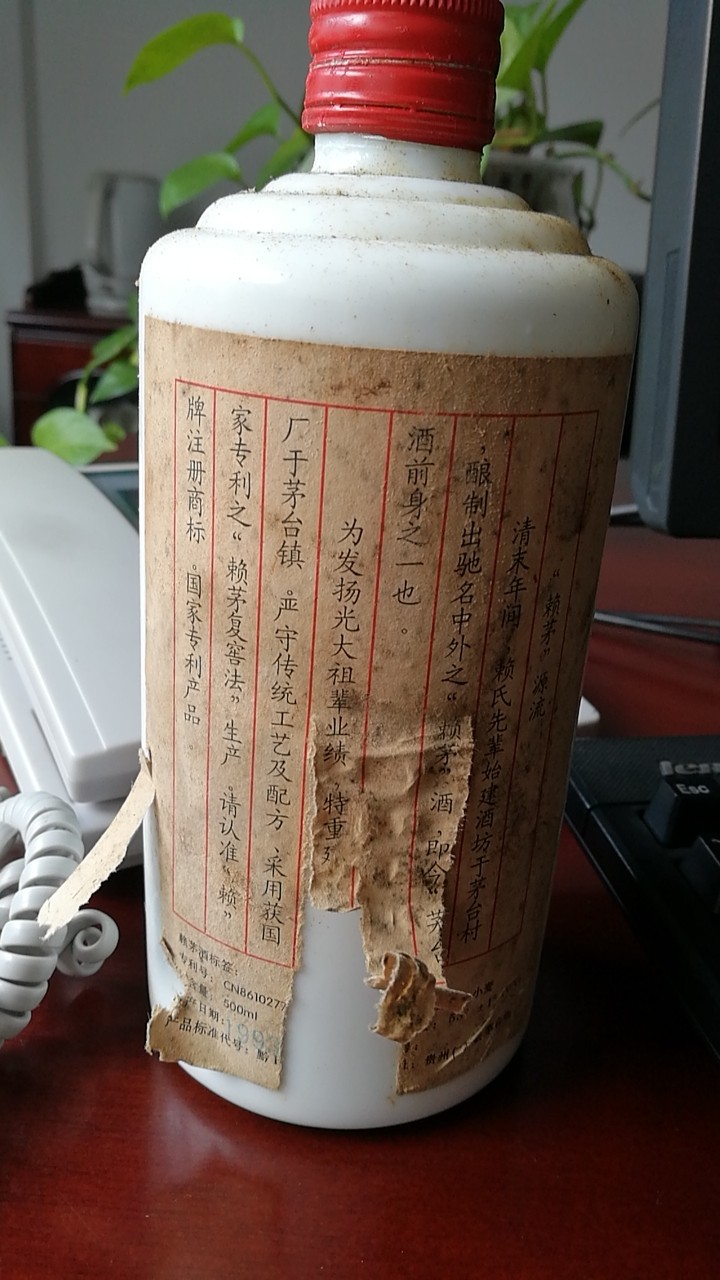 “赖茅”源流
清末年间，赖氏先辈始建酒坊于茅台村
，酿制出驰名中外之“赖茅”酒，即今
酒前身之一也。
为发扬光大祖辈业绩，特重
厂于茅台镇。严守传统工艺及配方，采用获国
家专利之“赖茅复窖法”生产。请认准“赖”
牌注册商标。国家专利产品。
赖茅酒标签：
专利号：CN861027
量：500ml
日期：199
产品标准代号：黔
小麦
贵州仁
Esc